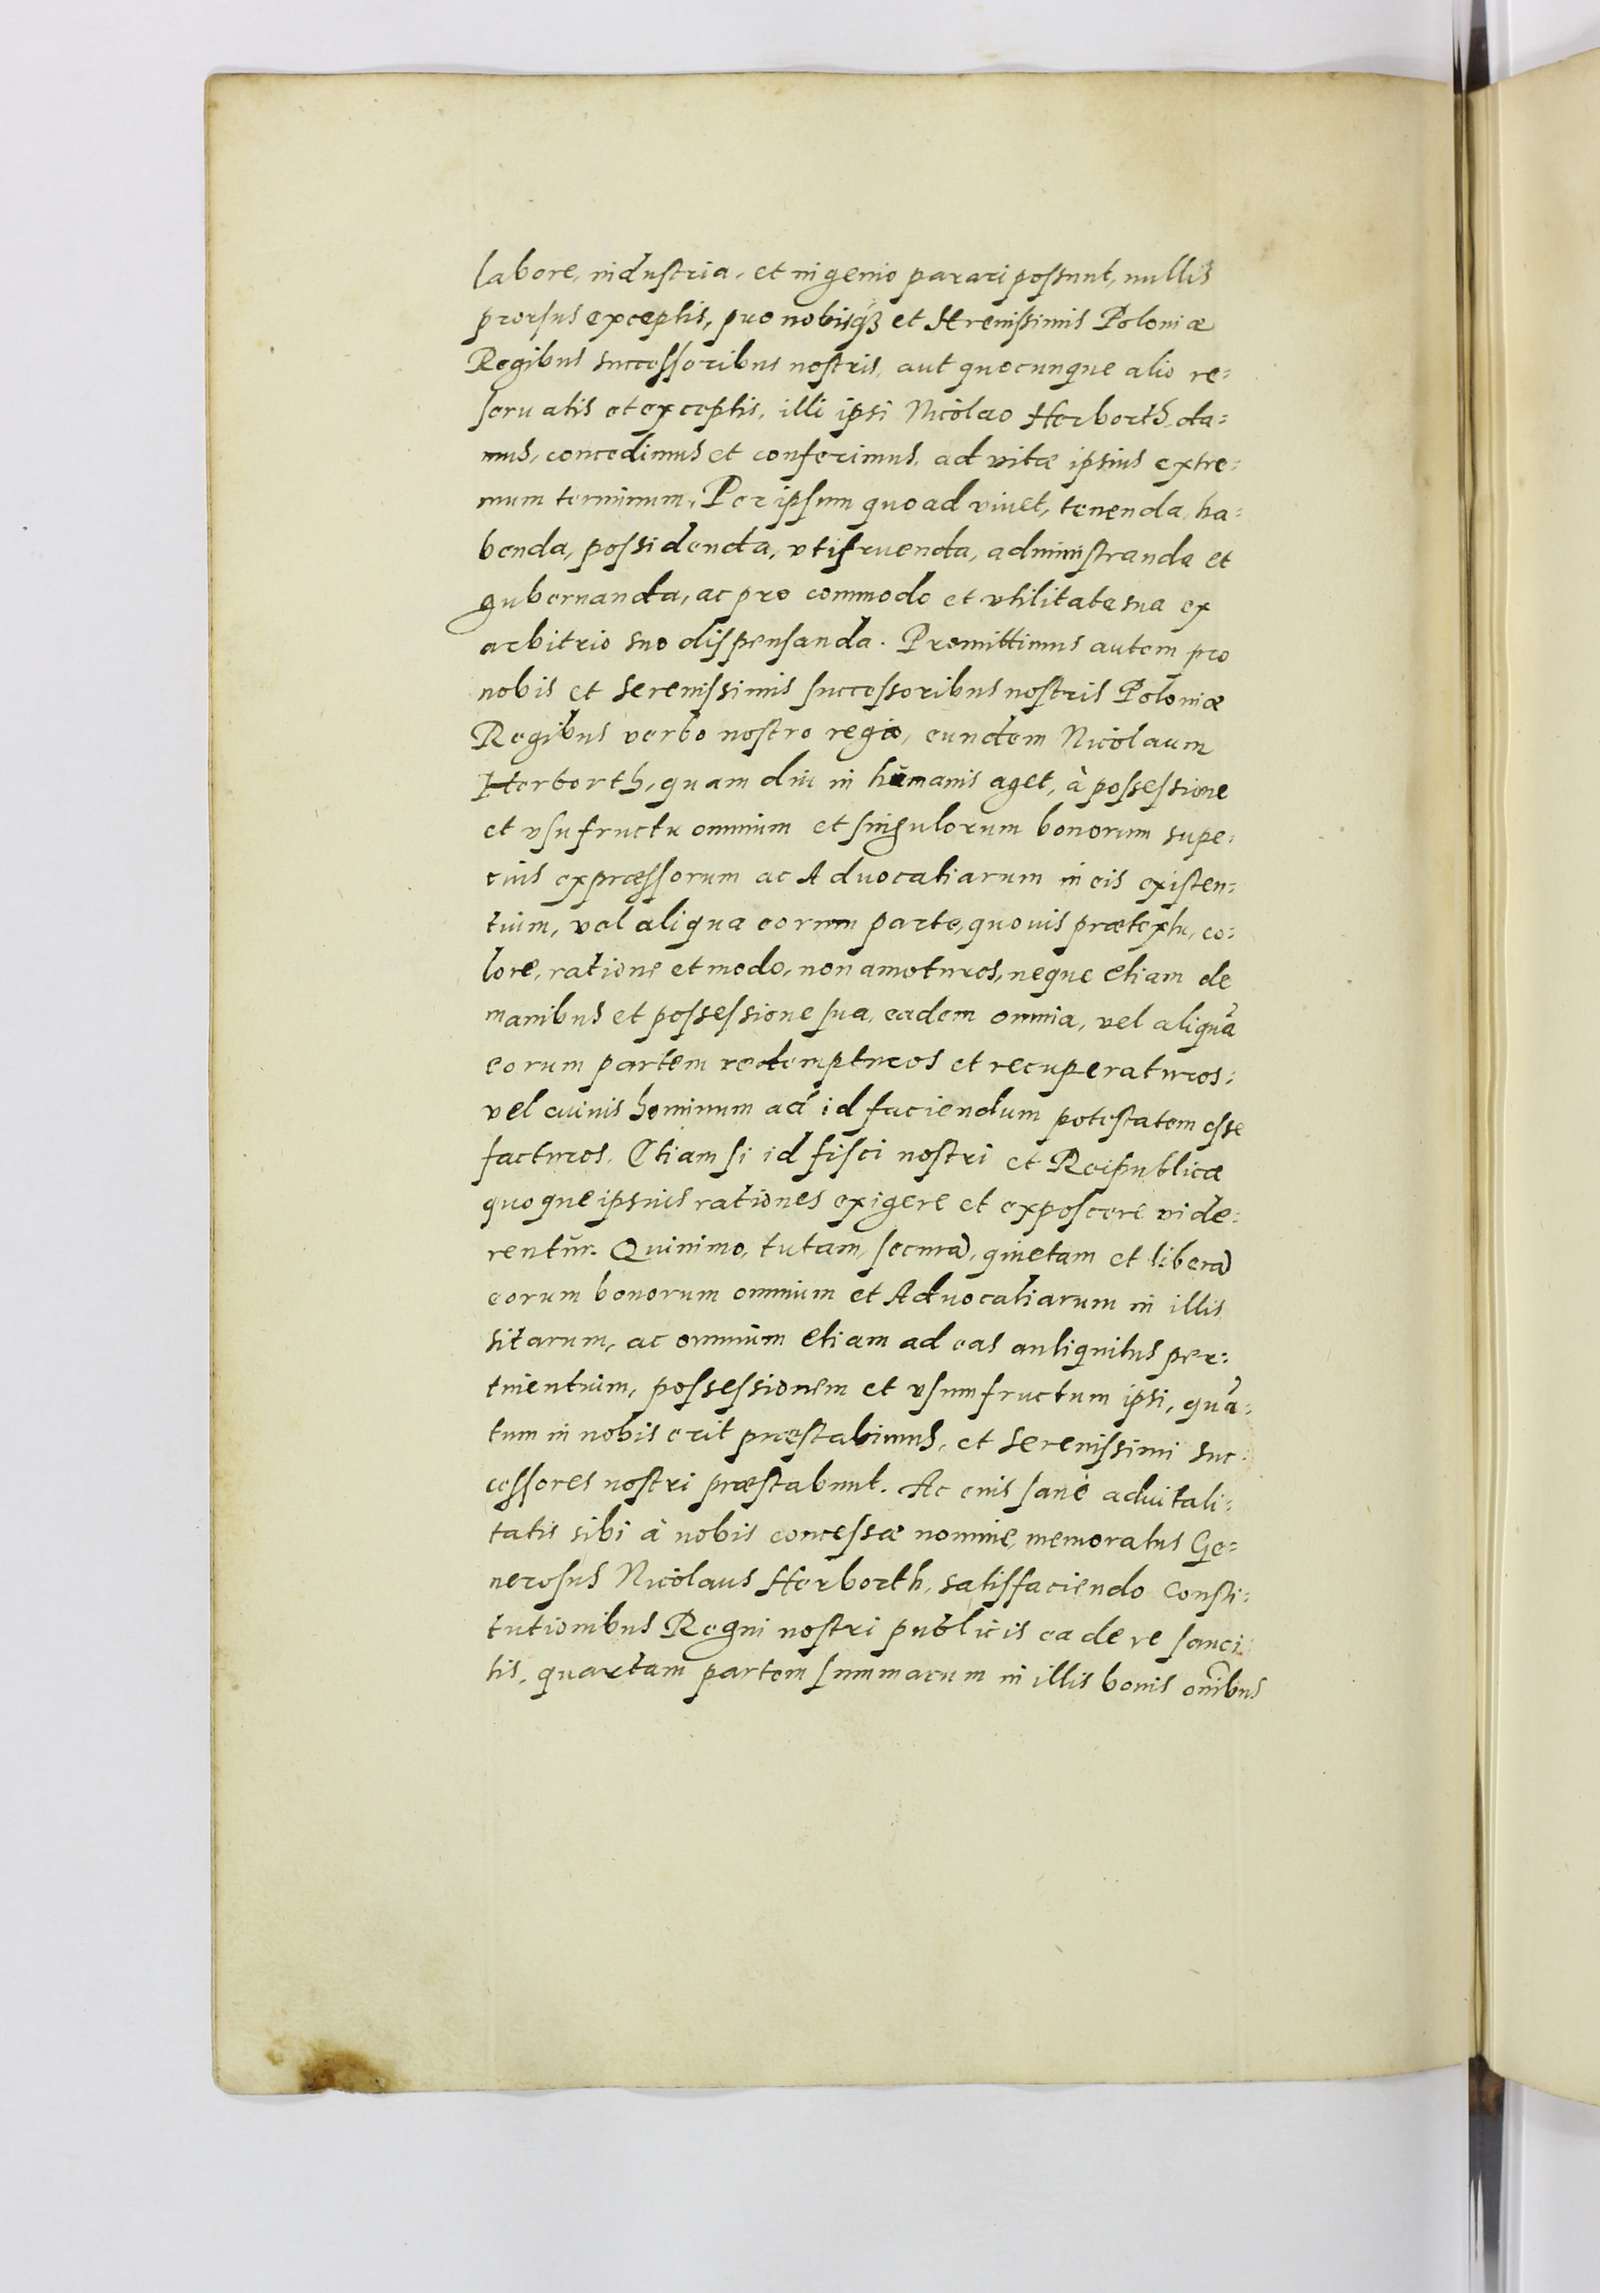 labore, industria, et ingenio parari possunt, nullis
prorsus exceptis, pro nobisq́ꝫ et serenissimis Poloniæ
Regibus successoribus nostris, aut quocunque alio re=
seruatis et exceptis, illi ipsi Nicolao Herborth, da=
mus, concedimus et conferimus, ad vitæ ipsius extre=
mum terminum, Per ipsum quoad viuet, tenenda, ha=
benda, possidenda, vtifruenda, administranda et
gubernanda, ac pro commodo et vtilitate sua ex
arbitrio suo dispensanda. Promittimus autem pro
nobis et serenissimis successoribus nostris Poloniæ
Regibus verbo nostro regio, eundem Nicolaum
Herborth, quam diu in humanis aget, à possessione
et vsufructu omnium et singulorum bonorum supe=
rius expræssorum ac Aduocatiarum in eis existen=
tium, vel aliqua eorum parte, quouis prætextu, co=
lore, ratione et modo, non amoturos, neque etiam de
manibus et possessione sua, eadem omnia, vel aliquã
eorum partem redempturos et recuperaturos:
vel cuiuis hominum ad id faciendum potestatem esse
facturos. Etiam si id fisci nostri et Reipublicæ
quoque ipsius rationes exigere et exposcere vide=
rentur. Quinimo, tutam, securã, quietam et liberã
eorum bonorum omnium et Aduocatiarum in illis
sitarum, ac omnium etiam ad eas antiquitus per=
tinentium, possessionem et vsumfructum ipsi, quã=
tum in nobis erit præstabimus, et serenissimi suc=
cessores nostri præstabunt. Ac eius sanè aduitali=
tatis sibi à nobis concessæ nomine, memoratus Ge=
nerosus Nicolaus Herborth, satisfaciendo Consti=
tutionibus Regni nostri publicis ea de re sanci=
tis, quartam partem summarum in illis bonis oñibus